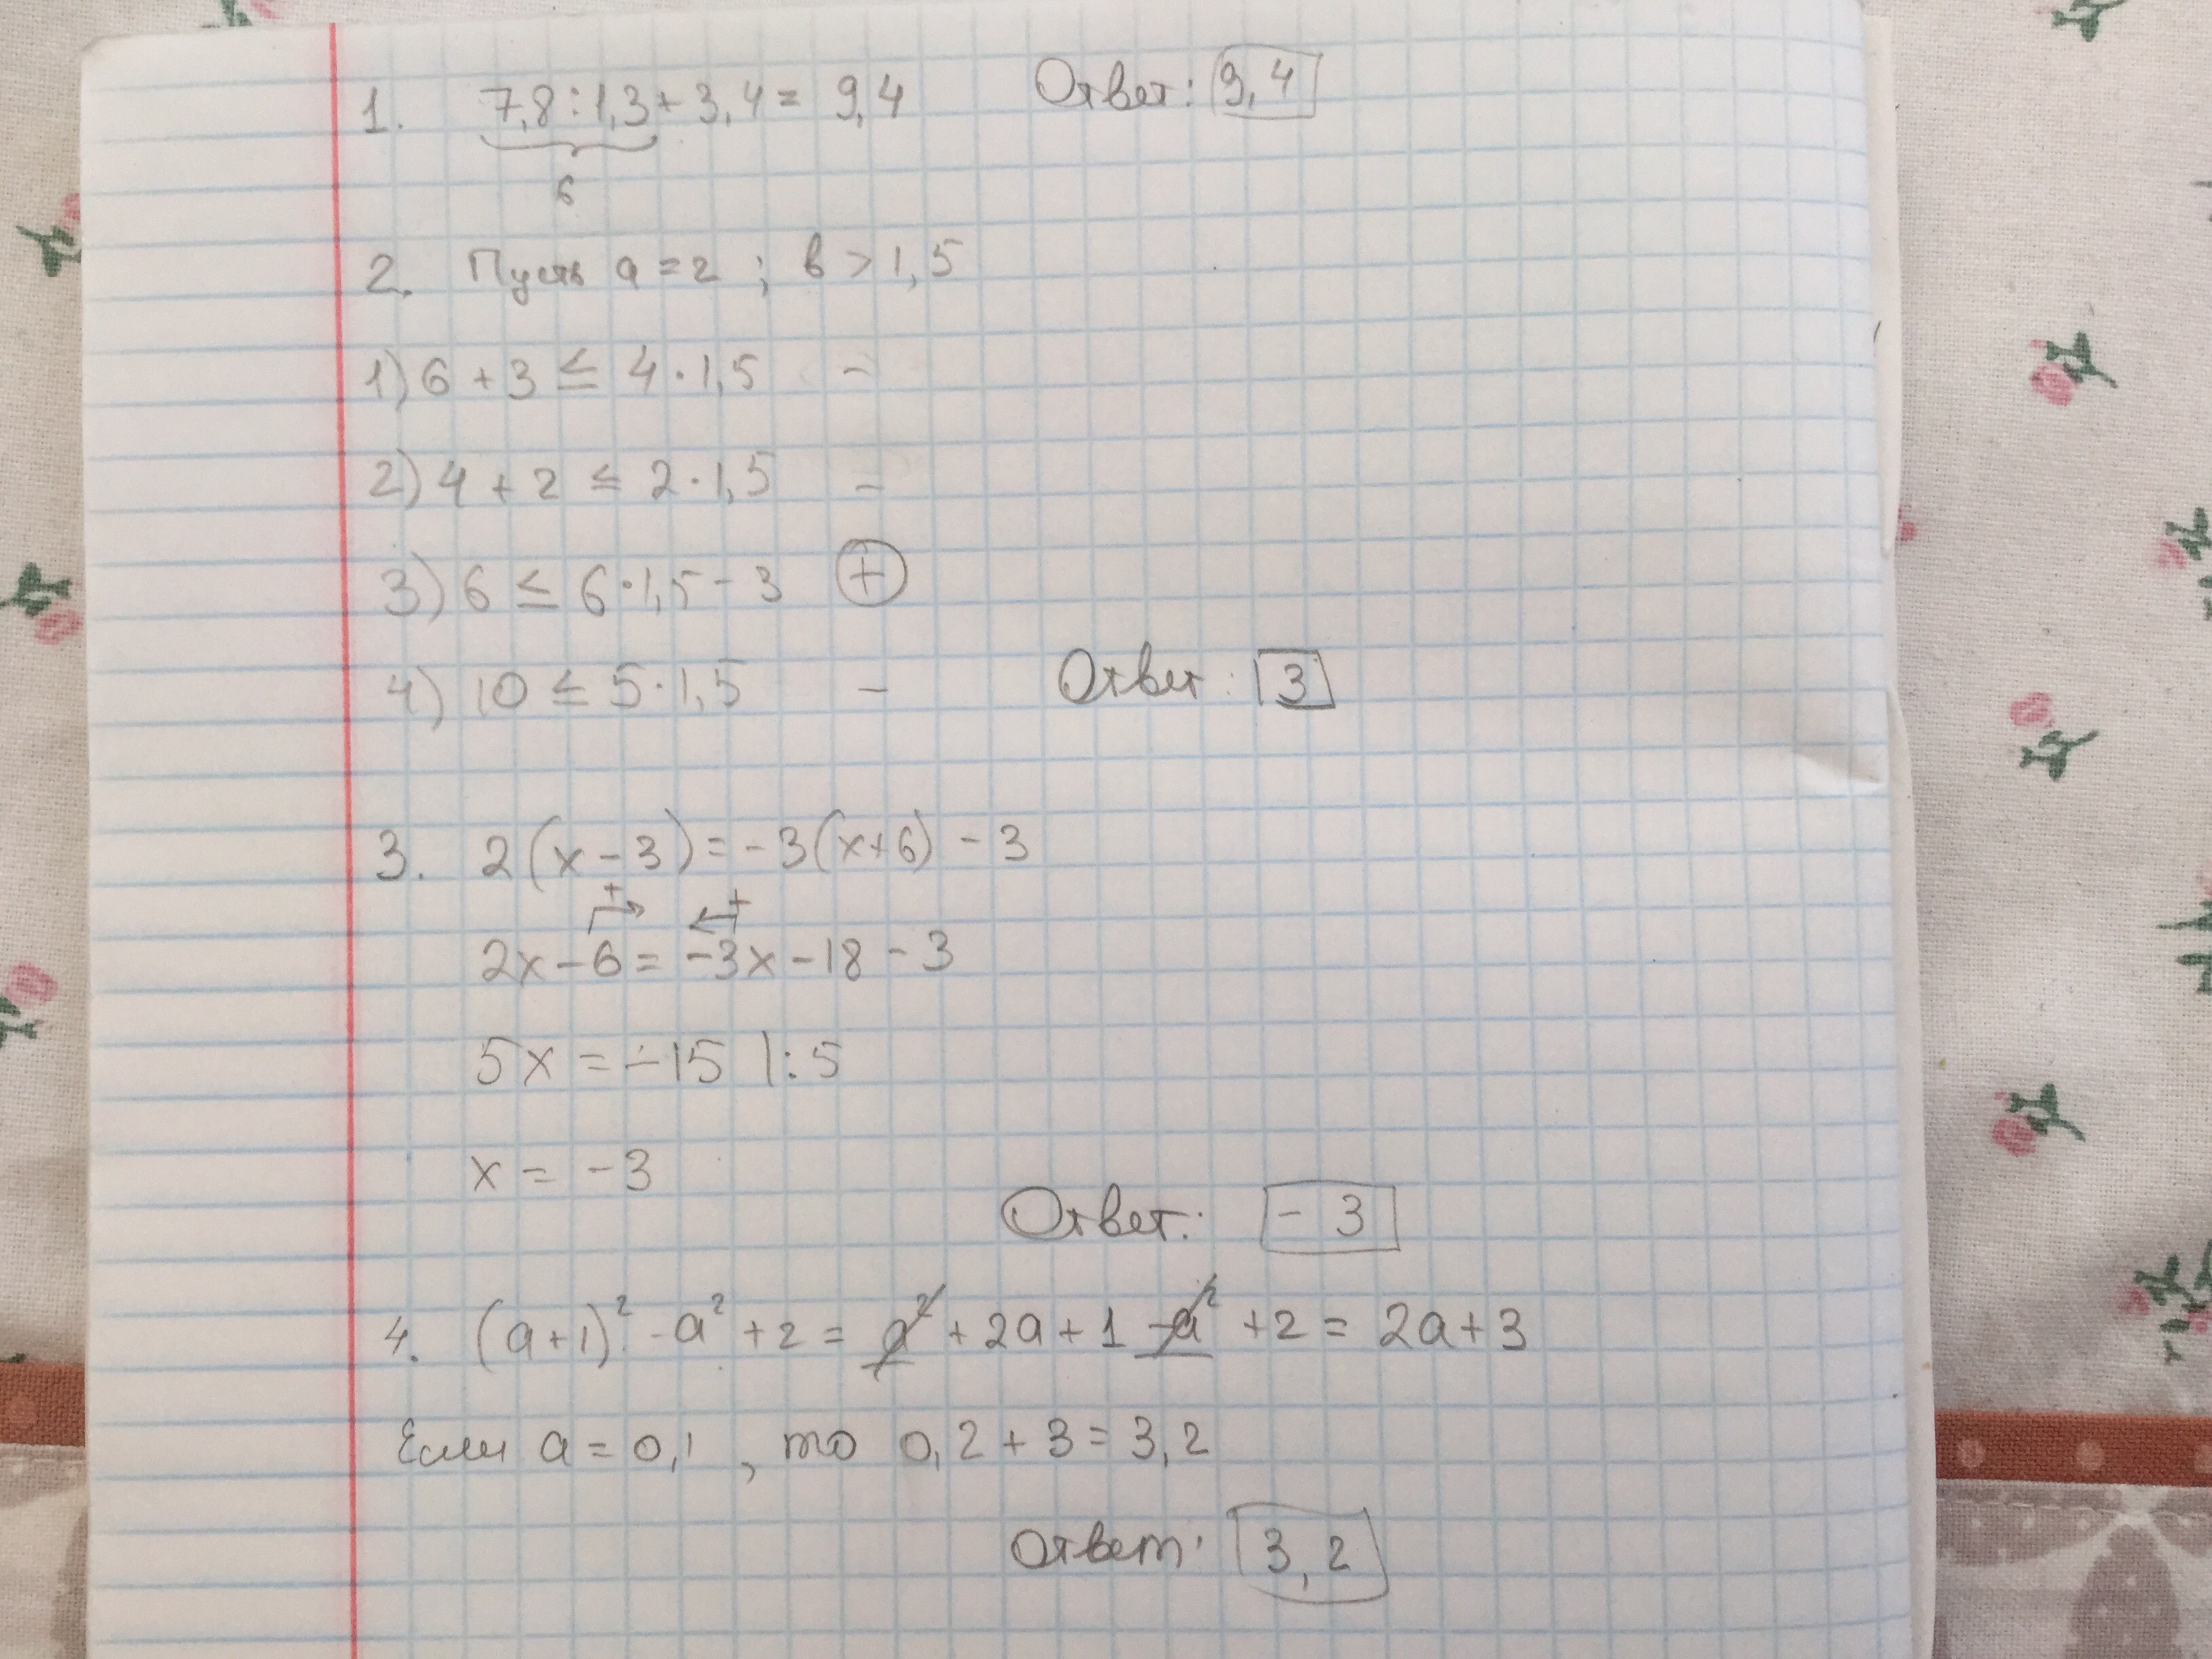 1. 7,8 : 1,3 + 3,4 = 9,4 Ответ: 9,4
6
2. Пусть a = 2 ; b > 1,5
1) 6 + 3 ≤ 4 · 1,5 -
2) 4 + 2 ≤ 2 · 1,5 -
3) 6 ≤ 6 · 1,5 - 3 +
4) 10 ≤ 5 · 1,5 - Ответ: 3
3. 2(x - 3) = -3(x+6) - 3
+ +
2x - 6 = -3x - 18 - 3
5x = -15 |: 5
x = -3
Ответ: -3
4. (a+1)² - a² + 2 = a² + 2a + 1 - a² + 2 = 2a + 3
Если a = 0,1 , то 0,2 + 3 = 3,2
Ответ: 3,2